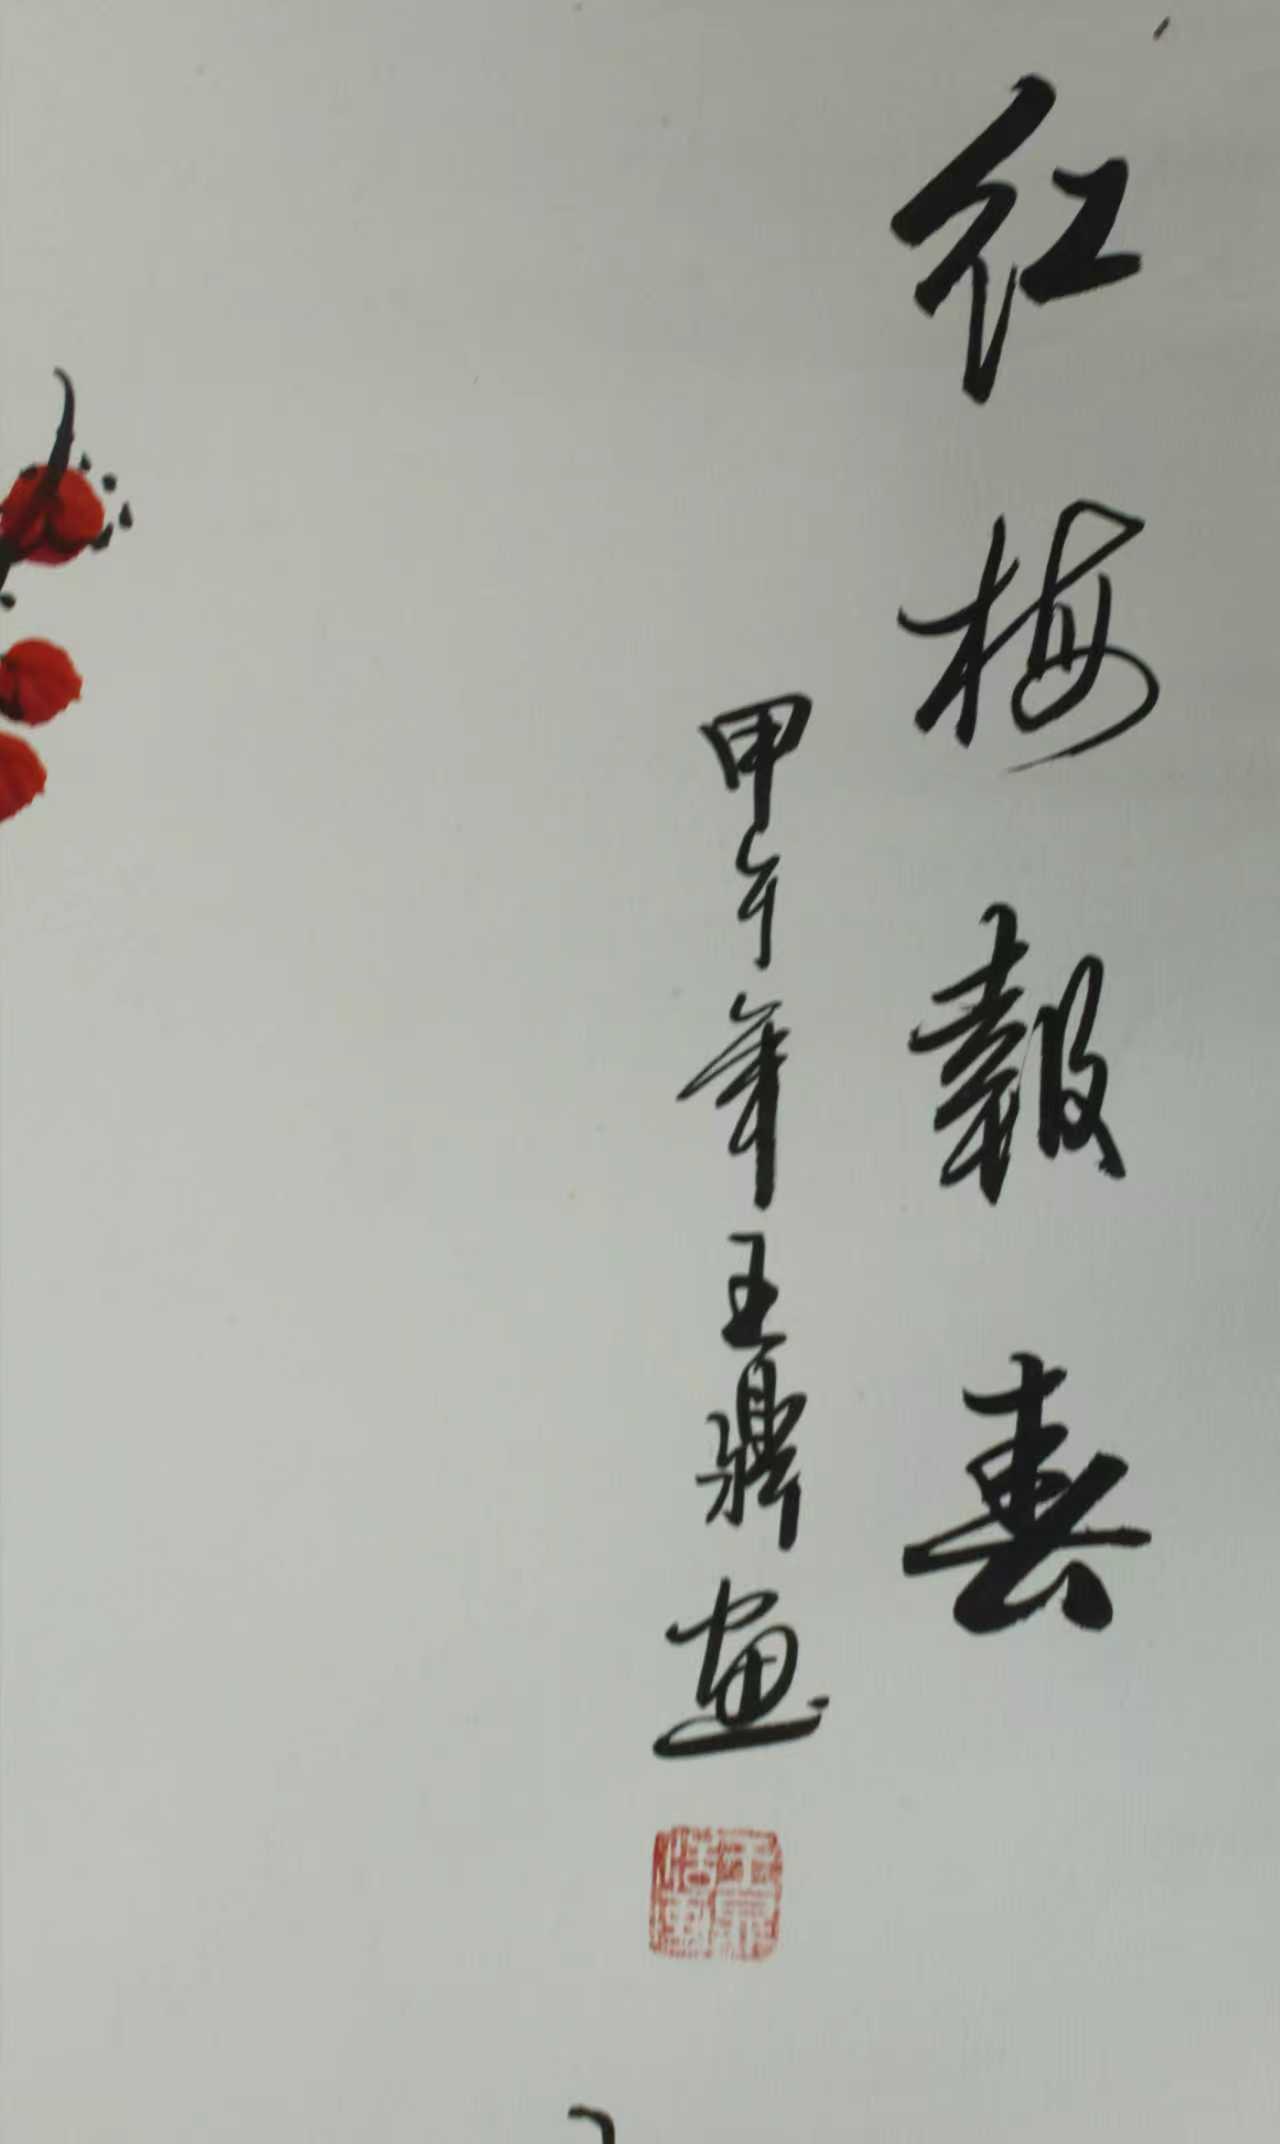 红梅報春
甲午年王鼎画